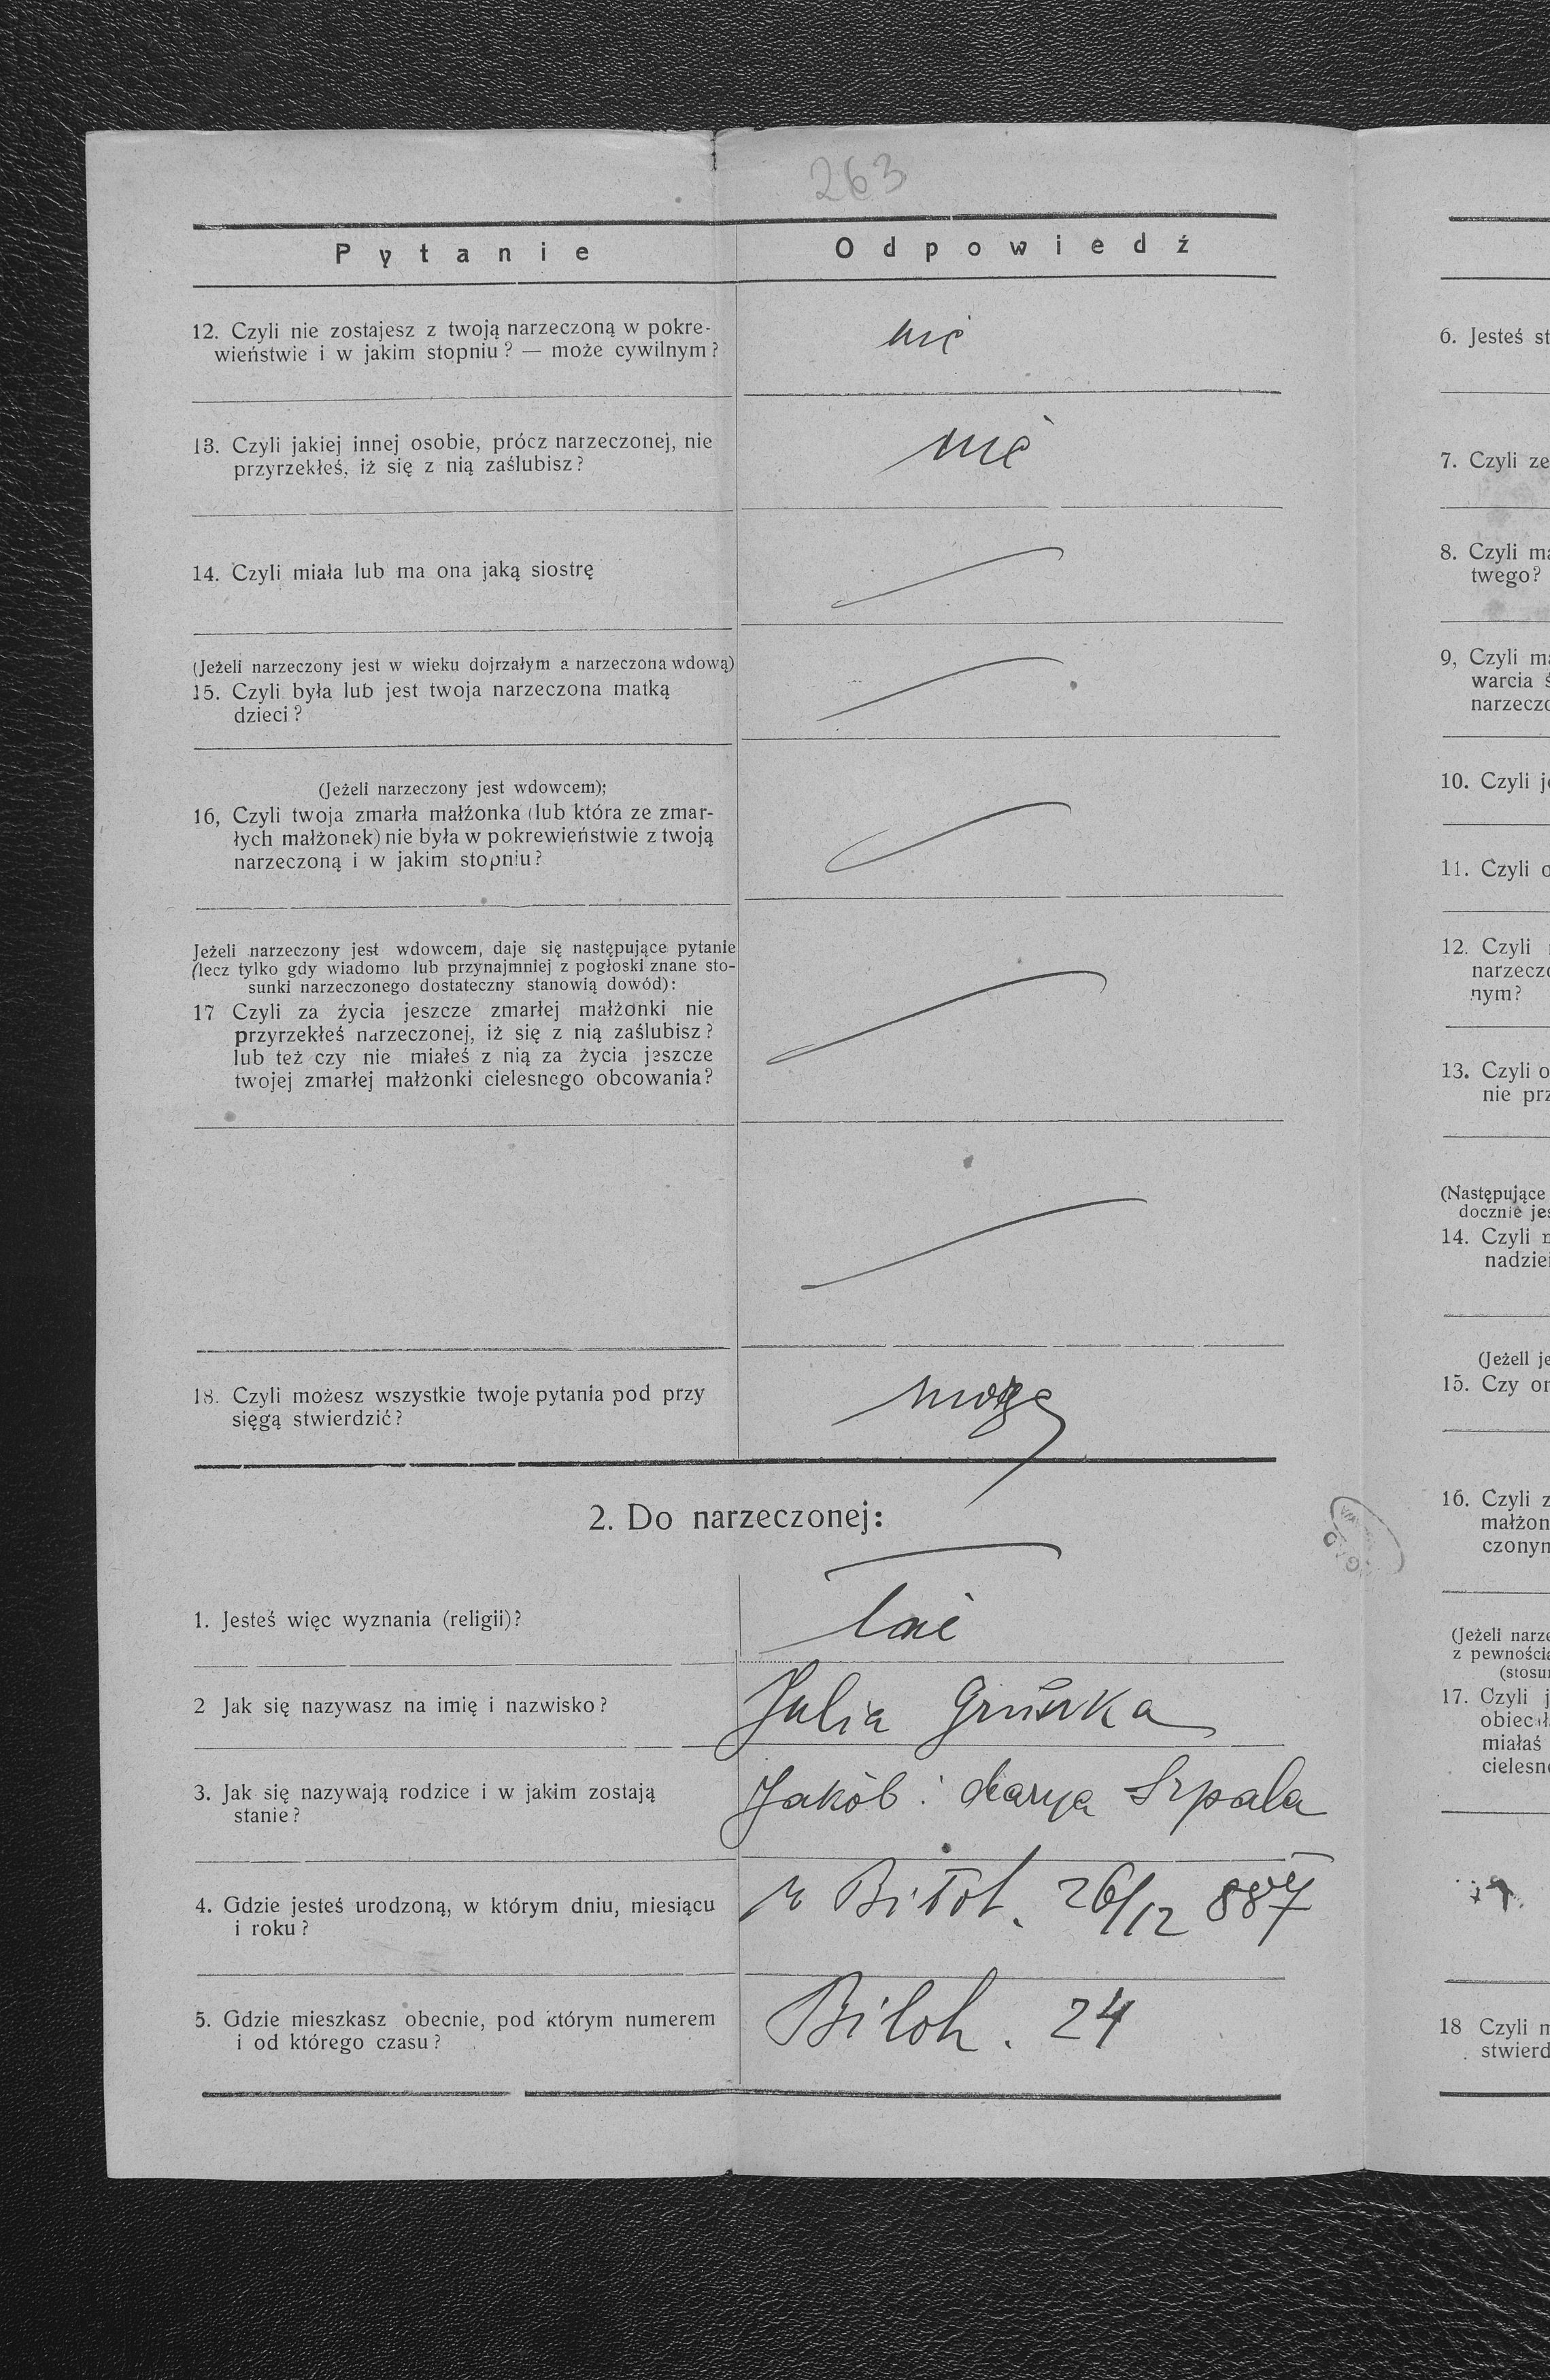 263
Pytanie Odpowiedź
12. Czyli nie zostajesz z twoją narzeczoną w pokre-
wieństwie i w jakim stopniu? — może cywilnym?
nie
13. Czyli jakiej innej osobie, prócz narzeczonej, nie
przyrzekłeś, iż się z nią zaślubisz?
nie
14. Czyli miała lub ma ona jaką siostrę
(Jeżeli narzeczony jest w wieku dojrzałym a narzeczona wdową)
15. Czyli była lub jest twoja narzeczona matką
dzieci?
(Jeżeli narzeczony jest wdowcem);
16, Czyli twoja zmarła małżonka (lub która ze zmar-
łych małżonek) nie była w pokrewieństwie z twoją
narzeczoną i w jakim stopniu?
Jeżeli narzeczony jest wdowcem, daje się następujące pytanie
(lecz tylko gdy wiadomo lub przynajmniej z pogłoski znane sto-
sunki narzeczonego dostateczny stanowią dowód):
17 Czyli za życia jeszcze zmarłej małżonki nie
przyrzekłeś narzeczonej, iż się z nią zaślubisz?
lub też czy nie miałeś z nią za życia jeszcze
twojej zmarłej małżonki cielesnego obcowania?
18. Czyli możesz wszystkie twoje pytania pod przy
sięgą stwierdzić?
mogę
2. Do narzeczonej:
1. Jesteś więc wyznania (religii)?
2 Jak się nazywasz na imię i nazwisko?
Julia
3. Jak się nazywają rodzice i w jakim zostają
stanie?
Jakób Marya Szpala
4. Gdzie jesteś urodzoną, w którym dniu, miesiącu
i roku?
26/12 887
5. Gdzie mieszkasz obecnie, pod którym numerem
i od którego czasu?
Biłoh. 24
6. Jesteś st
7. Czyli ze
8. Czyli ma
twego?
9, Czyli ma
warcia ś
narzeczo
10. Czyli je
11. Czyli o
12. Czyli
narzeczo
nym?
13. Czyli o
nie prz
(Następujące
docznie jes
14. Czyli n
nadziei
(Jeżeli je
15. Czy on
16. Czyli z
małżon
czonym
(Jeżeli narze
z pewnością
(stosun
17. Czyli j
obiecał
miałaś
cielesne
18 Czyli m
stwierd